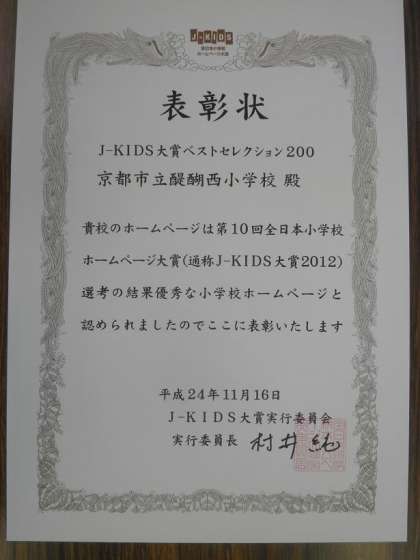 J-KIDS
全日本小学校
ホームページ大賞
表彰状
J-KIDS大賞ベストセレクション200
京都市立醍醐西小学校 殿
貴校のホームページは第10回全日本小学校
ホームページ大賞(通称J-KIDS大賞2012)
選考の結果優秀な小学校ホームページと
認められましたのでここに表彰いたします
平成24年11月16日
J-KIDS大賞実行委員会
実行委員長 村井純